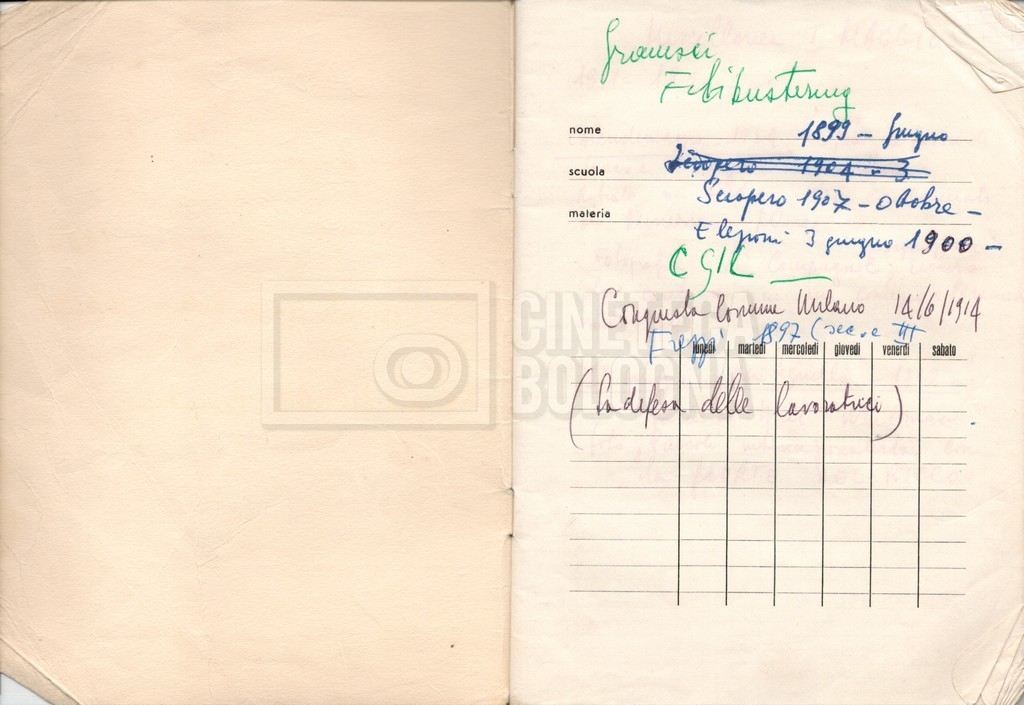 Gramsci
Filibustering
nome
1899 - Giugno
scuola
Sciopero 1904 - 3
Sciopero 1907 - Ottobre -
materia
Elezioni 3 giugno 1900 -
CGIL
Conquista Comune Milano 14/6/1914
1897 (sec. e III
lunedì martedì mercoledì giovedì venerdì sabato
(La difesa delle lavoratrici)
CINETECA
BOLOGNA